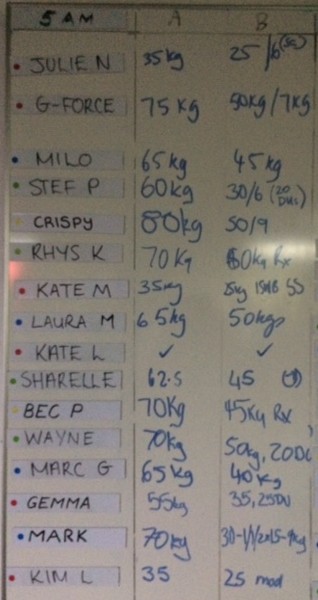 5 AM A B
JULIE N 35kg 25/6
G-FORCE 75kg 50kg/7kg
MILO 65kg 45kg
STEF P 60kg 30/6 (20
CRISPY 80kg 50/9
RHYS K 70kg 60kg Rx
KATE M 35kg 15kg
LAURA M 65kg 50kgs
KATE L ✓ ✓
SHARELLE 62.5 45
BEC P 70kg 45kg Rx
WAYNE 70kg 50kg, 20DU
MARC G 65kg 40kg
GEMMA 55kg 35, 25DU
MARK 70kg
KIM L 35 25 mod